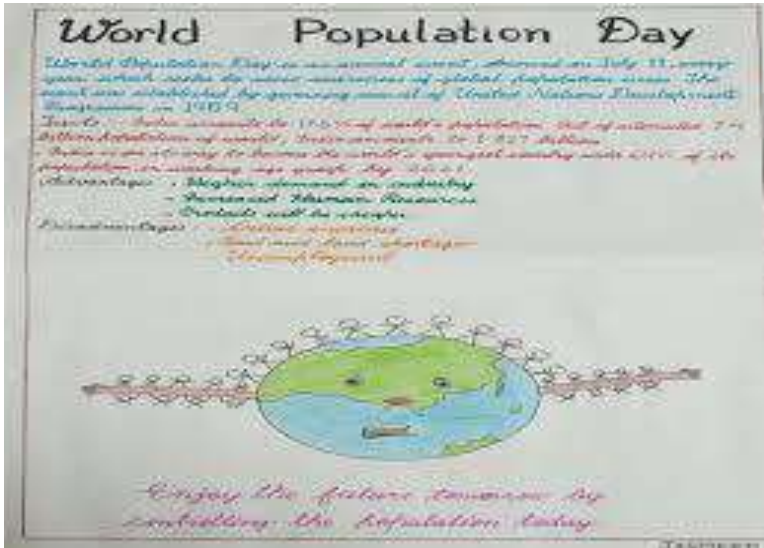 World Population Day
World Population Day is an annual event, observed on July 11 every
year, which seeks to raise awareness of global population issues. The
event was established by governing council of United Nations Development
Programme in 1989
India accounts to 17.5% of world's population. Out of estimated
billion population of world, India accounts to billion
India is to become the world's youngest country with of its
population in working age group by
Advantages - Higher demand in industry
- Increased Human Resources
- Products will be cheaper
Disadvantages
- Food and land shortage
- Unemployment
Enjoy the future tomorrow by
controlling the population today